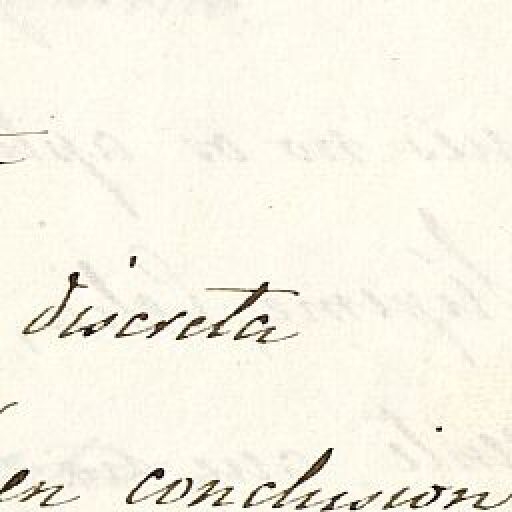 discreta
en conclusion